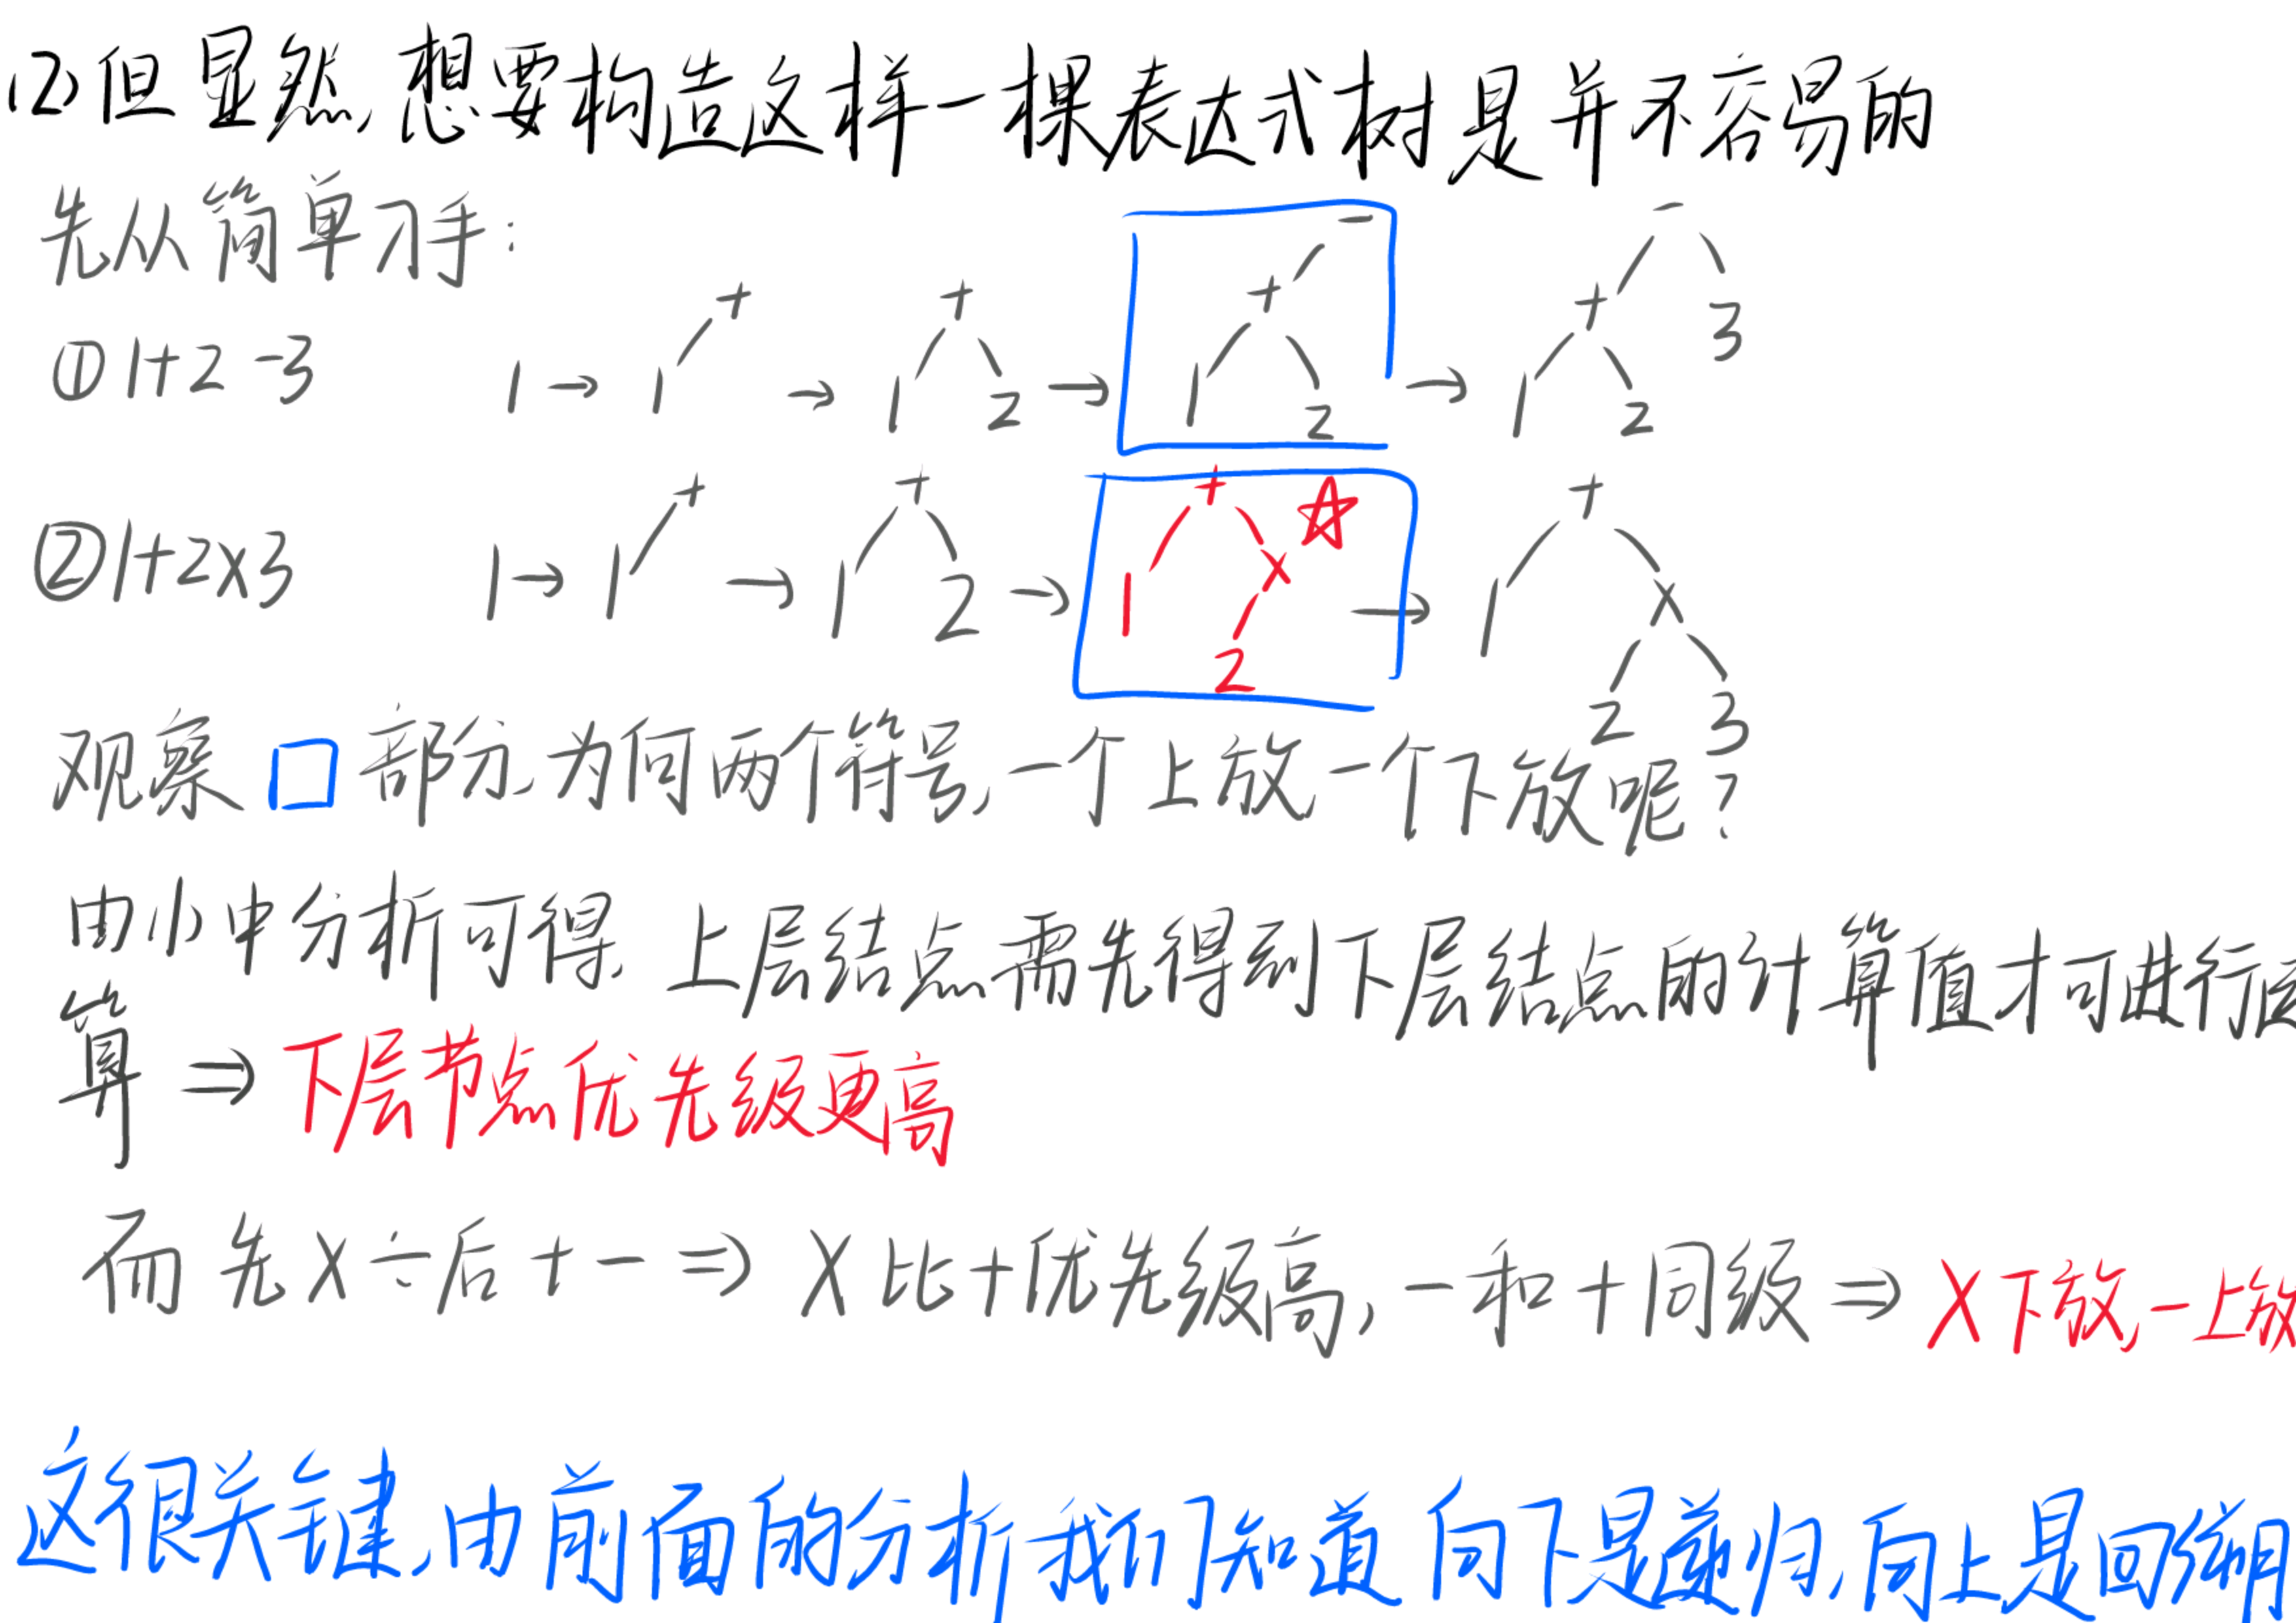 (2)但显然,想要构造这样一棵表达式树是并不容易的
先从简单入手:
①1+2-3 1→ 1 + → + 1 2 → - + 1 2 → - + 3 1 2
②1+2×3 1→ 1 + → + 1 2 → + 1 × 2 → + 1 × 2 3
观察 部分,为何两个符号,一个上放,一个下放呢?
由(1)中分析可得,上层结点需先得到下层结点的计算值才可进行运
算⇒下层节点优先级更高
而先×÷后+-⇒×比+优先级高,-和+同级⇒×下放,-上放
这很关键,由前面的分析我们知道向下是递归,向上是回溯